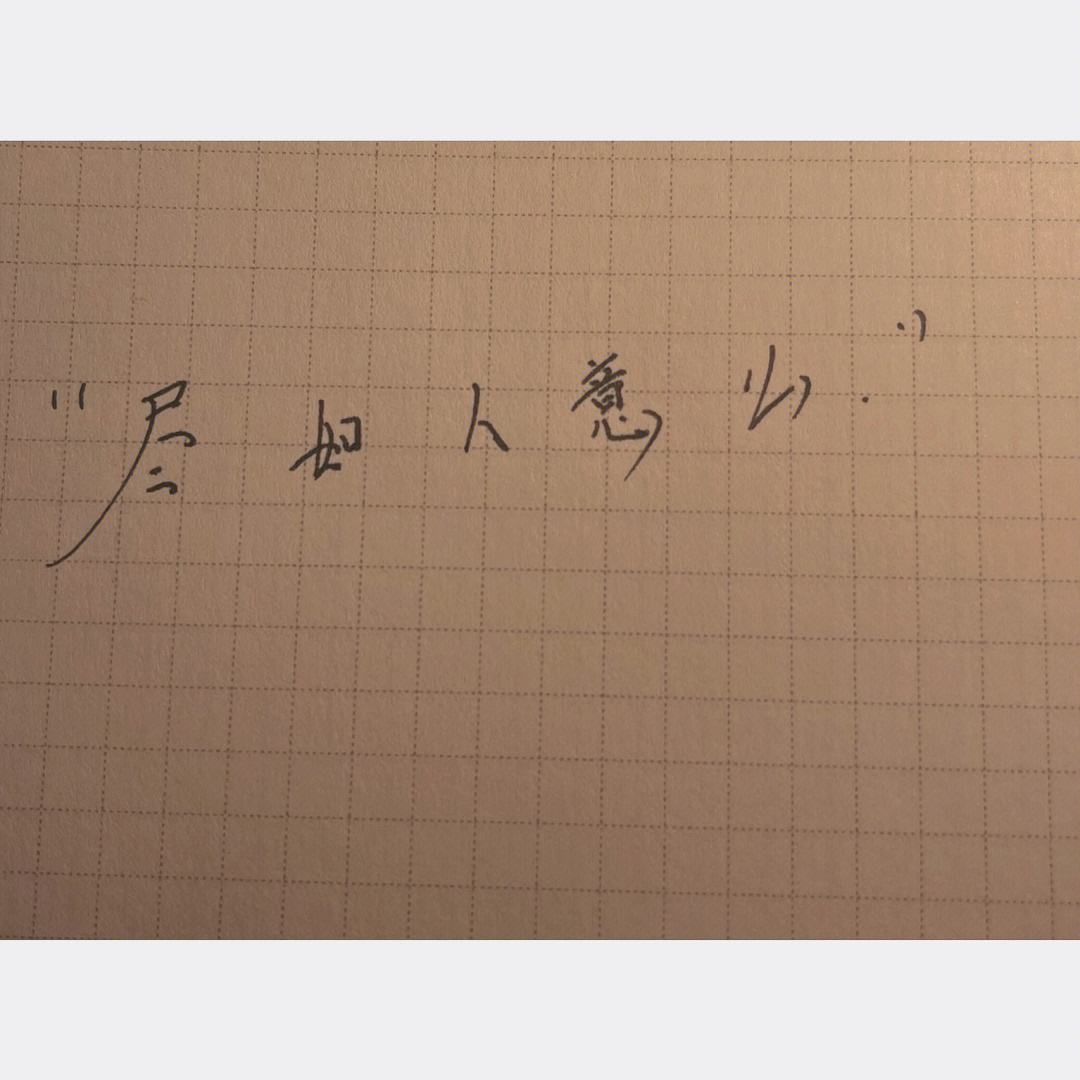 "尽如人意少."